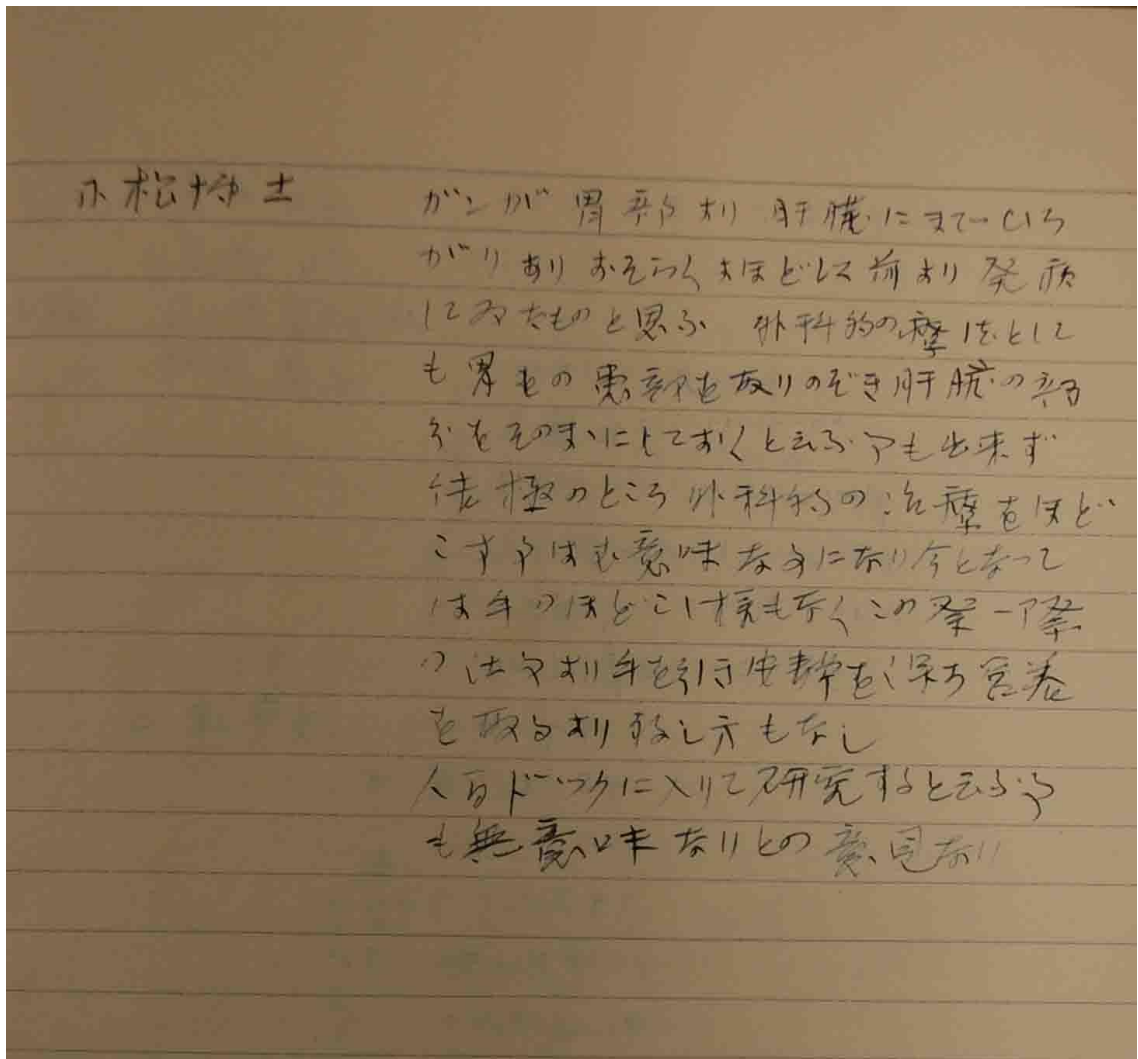 小松博士
ガンが胃部より肝臓にまでひろ
がりありおそらくよほど以前より発病
してゐたものと思ふ 外科的の療法として
も胃の患部を取りのぞき肝臓の部
分をそのまゝにしておくと云ふ事も出来ず
結極のところ外科的の治療をほど
こす事は無意味な事になり今となつて
は手のほどこし様もなくこの際一際
の法より手を引き安静を保ち営養
を取るより致し方もなし
人間ドックに入りて研究すると云ふ事
も無意味なりとの意見なり